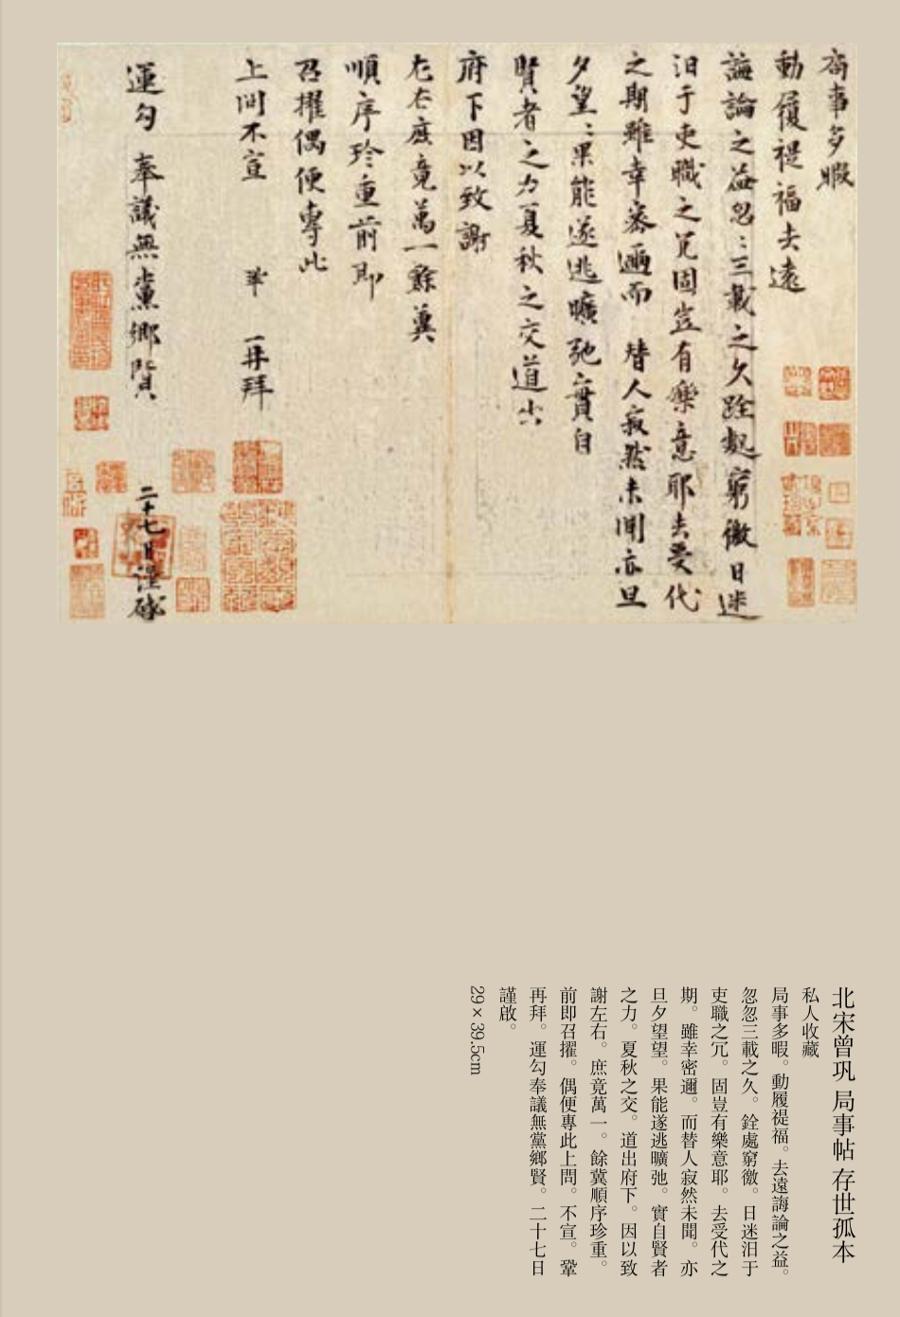 局事多暇
動履禔福去遠
誨論之益忽〻三載之久跧處窮徼日迷
汨于吏職之冗固豈有樂意耶去受代
之期雖幸密邇而替人寂然未聞亦旦
夕望〻果能遂逃曠弛實自
賢者之力夏秋之交道出
府下因以致謝
左右庶竟萬一餘冀
順序珍重前即
召擢偶便專此
上問不宣 鞏 再拜
運勾奉議無黨鄉賢
二十七日謹啟
北宋曾巩 局事帖 存世孤本
私人收藏
局事多暇。動履禔福。去遠誨論之益。
忽忽三載之久。銓處窮徼。日迷汨于
吏職之冗。固豈有樂意耶。去受代之
期。雖幸密邇。而替人寂然未聞。亦
旦夕望望。果能遂逃曠弛。實自賢者
之力。夏秋之交。道出府下。因以致
謝左右。庶竟萬一。餘冀順序珍重。
前即召擢。偶便專此上問。不宣。鞏
再拜。運勾奉議無黨鄉賢。二十七日
謹啟。
29×39.5cm